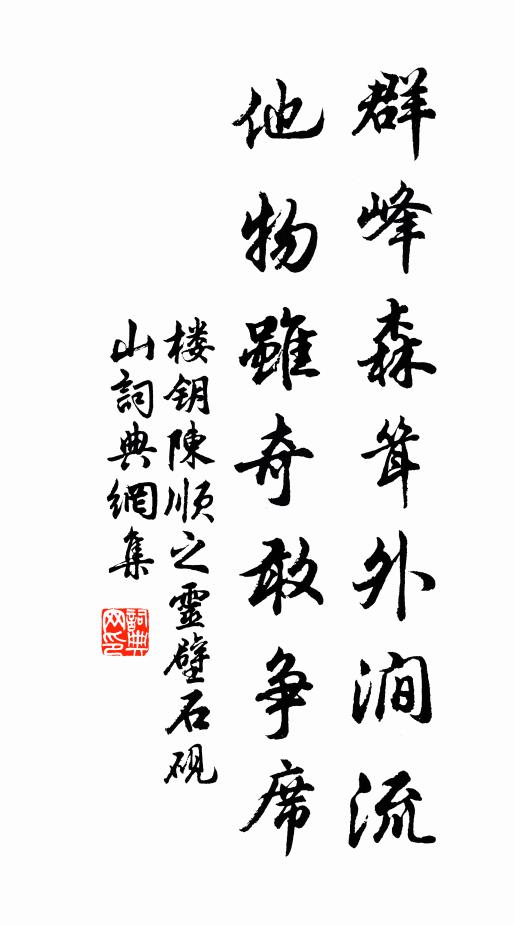 群峰森耸外澗流
他物雖奇敢争席
楼钥陳順之靈壁石硯
山詞典網集
詞典网印